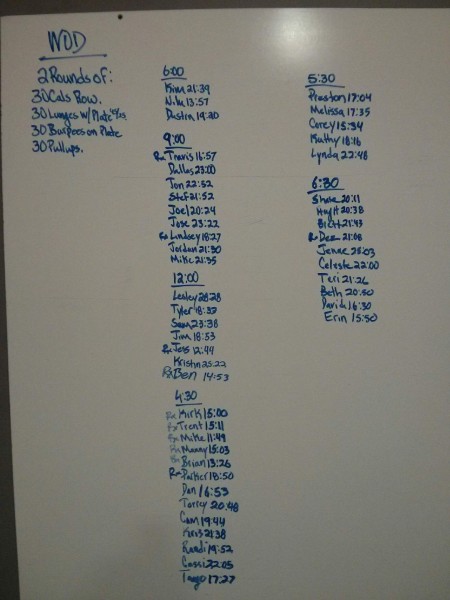 WOD
2 Rounds of:
30 Cals Row.
30 Lunges w/ Plate
30 Burpees on Plate
30 Pullups.
6:00
Kim 21:39
Nik 13:57
Dustin 19:20
9:00
Rx Travis 16:57
Dallas 23:00
Jon 22:52
Stef 21:52
Joel 20:24
Jose 23:22
Rx Lindsey 18:27
Jordan 21:30
Mike 21:35
12:00
Lesley 28:28
Tyler 18:32
Sam 23:38
Jim 18:53
Rx Jess 12:44
Kristin 25:22
Rx Ben 14:53
4:30
Rx Kirk 15:00
Rx Trent 15:11
Rx Mike 11:49
Rx Manny 15:03
Rx Brian 13:26
Rx Parker 18:50
Dan 16:53
Torrey 20:48
Cam 19:44
Kris 21:38
Randi 19:52
Cassi 22:05
Tango 17:27
5:30
Preston 17:04
Melissa 17:35
Corey 15:34
Kathy 18:16
Lynda 22:48
6:30
Shane 20:11
20:38
Brett 21:43
Rx Dez 21:08
Janae 25:03
Celeste 22:00
Teri 21:26
Beth 20:50
David 16:30
Erin 15:50